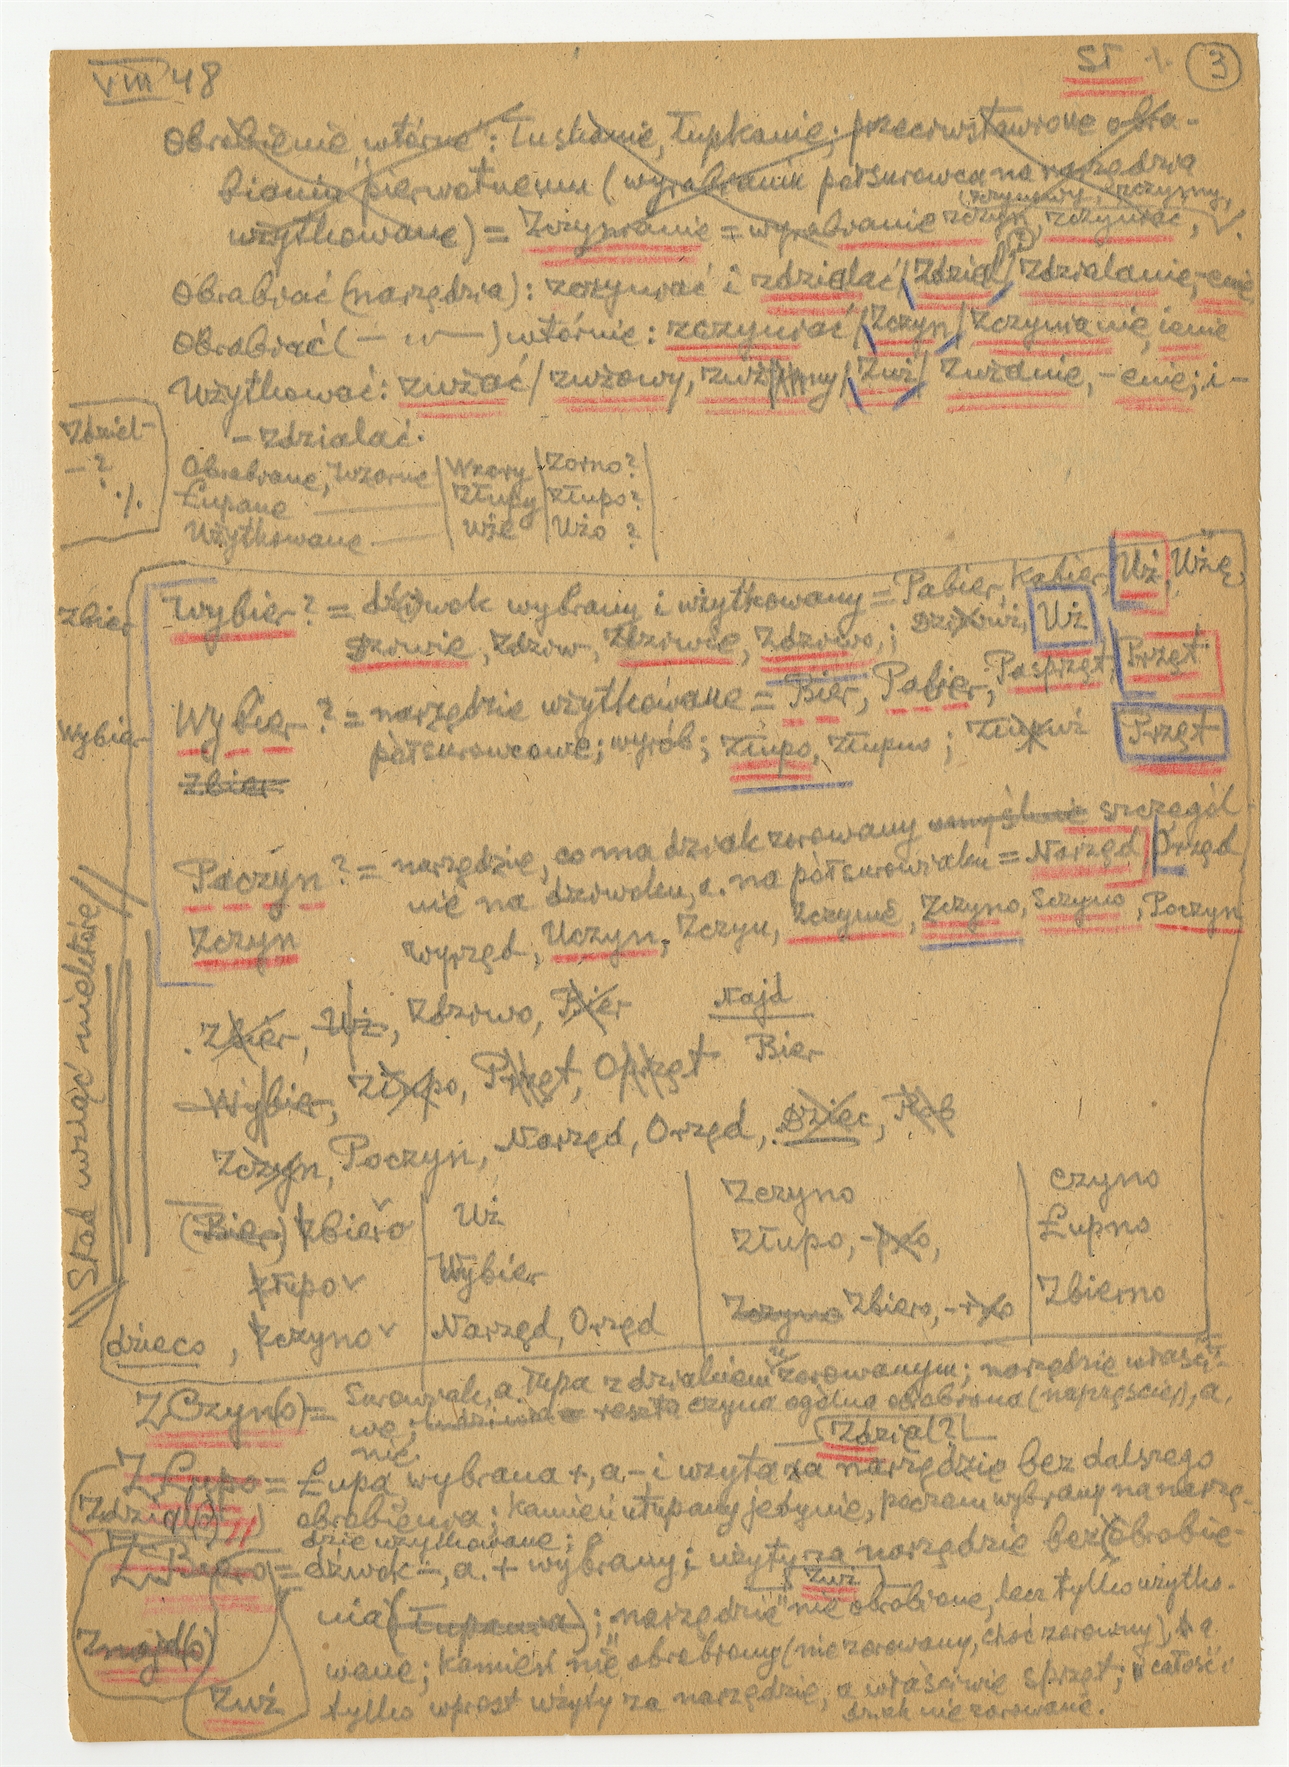 VIII 48
ST ./. 3
Obrabienie „wtórne”: Łuskanie, Łupkanie; przeciwstawione obra-
bianiu pierwotnemu (wyrabianiu półsurowca na narzędzia
użytkowane) = Zużynianie = wyrabianie zczyn, zczyniać, V.
Obrabiać (narzędzia): zczyniać i zdziałać / Zdział / Zdziałanie, -enie,
Obrabiać (— „ —) wtórnie: zczyniać / Zczyn / Zczynianie, ienie
Użytkować: zużać / zużowy, zużymy / Zuż / Zużanie, -enie; i-
- zdziałać.
Zdział-
- ?
./.
Obrabiane, Wzorne | Wzory | Zorno?
Łupane — | Złupy | Złupo?
Użytkowane — | Uże | Użo ?
Zbier
Wybier? = dziwok wybrany i użytkowany = Pabier, Kabier, Uż, Użę,
Dziwie, Zdziw-, Zdziwie, Zdziwo,; Uż
Wybier
Wybier? = narzędzie użytkowane = Bier, Pabier, Pasprzęt, Przęt
półsurowcowe; wyrób; Złupo, Złupno; Przęt
Zbier
Paczyn? = narzędzie, co ma dziak zorowany umyślnie szczegól-
nie na dziwoku, a. na półsurowiaku = Narzęd / Orzęd
Zczyn
Wyrzęd, Uczyn, Zczyn, Zczynie, Zczyno, Sczyno, Poczyn
Stąd wziąć niektóre //
Zbier, Uż, Zdziwo, Bier
Najd
Wybier, Złupo, Przęt, Oprzęt Bier
Zczyn, Poczyn, Narzęd, Orzęd, Dzięc, Rob
(Bier) Zbiero | Uż | Zczyno | Czyno
złupo | Wybier | Złupo, | Łupno
dzieco, Zczyno | Narzęd, Orzęd | Zczyno Zbiero, | Zbierno
ZCzyn(o) = Surowiak, a Łupa z działniem zorowanym; narzędzie właści-
we; reszta czyna ogólna obrobiona (naprzęście), a.
nie.
Zdział?
ZŁupo = Łupa wybrana +, a - i wzyta za narzędzie bez dalszego
Zdział(o)
obrobienia; kamień utłupany jedynie, poczem wybrany na narzę-
dzie użytkowane;
ZBiero = dziwok -, a. + wybrany i użyty za narzędzie bez obrobie-
Zuż
nia (Łupania); narzędzie „nie obrobione, lecz tylko użytko-
Znajd(o)
wane; kamień „nie” obrabiany (nie zorowany, choć zorowny), a
Zuż
tylko wprost użyty za narzędzie, a właściwie sprzęt; całość i
dziak nie zorowane.